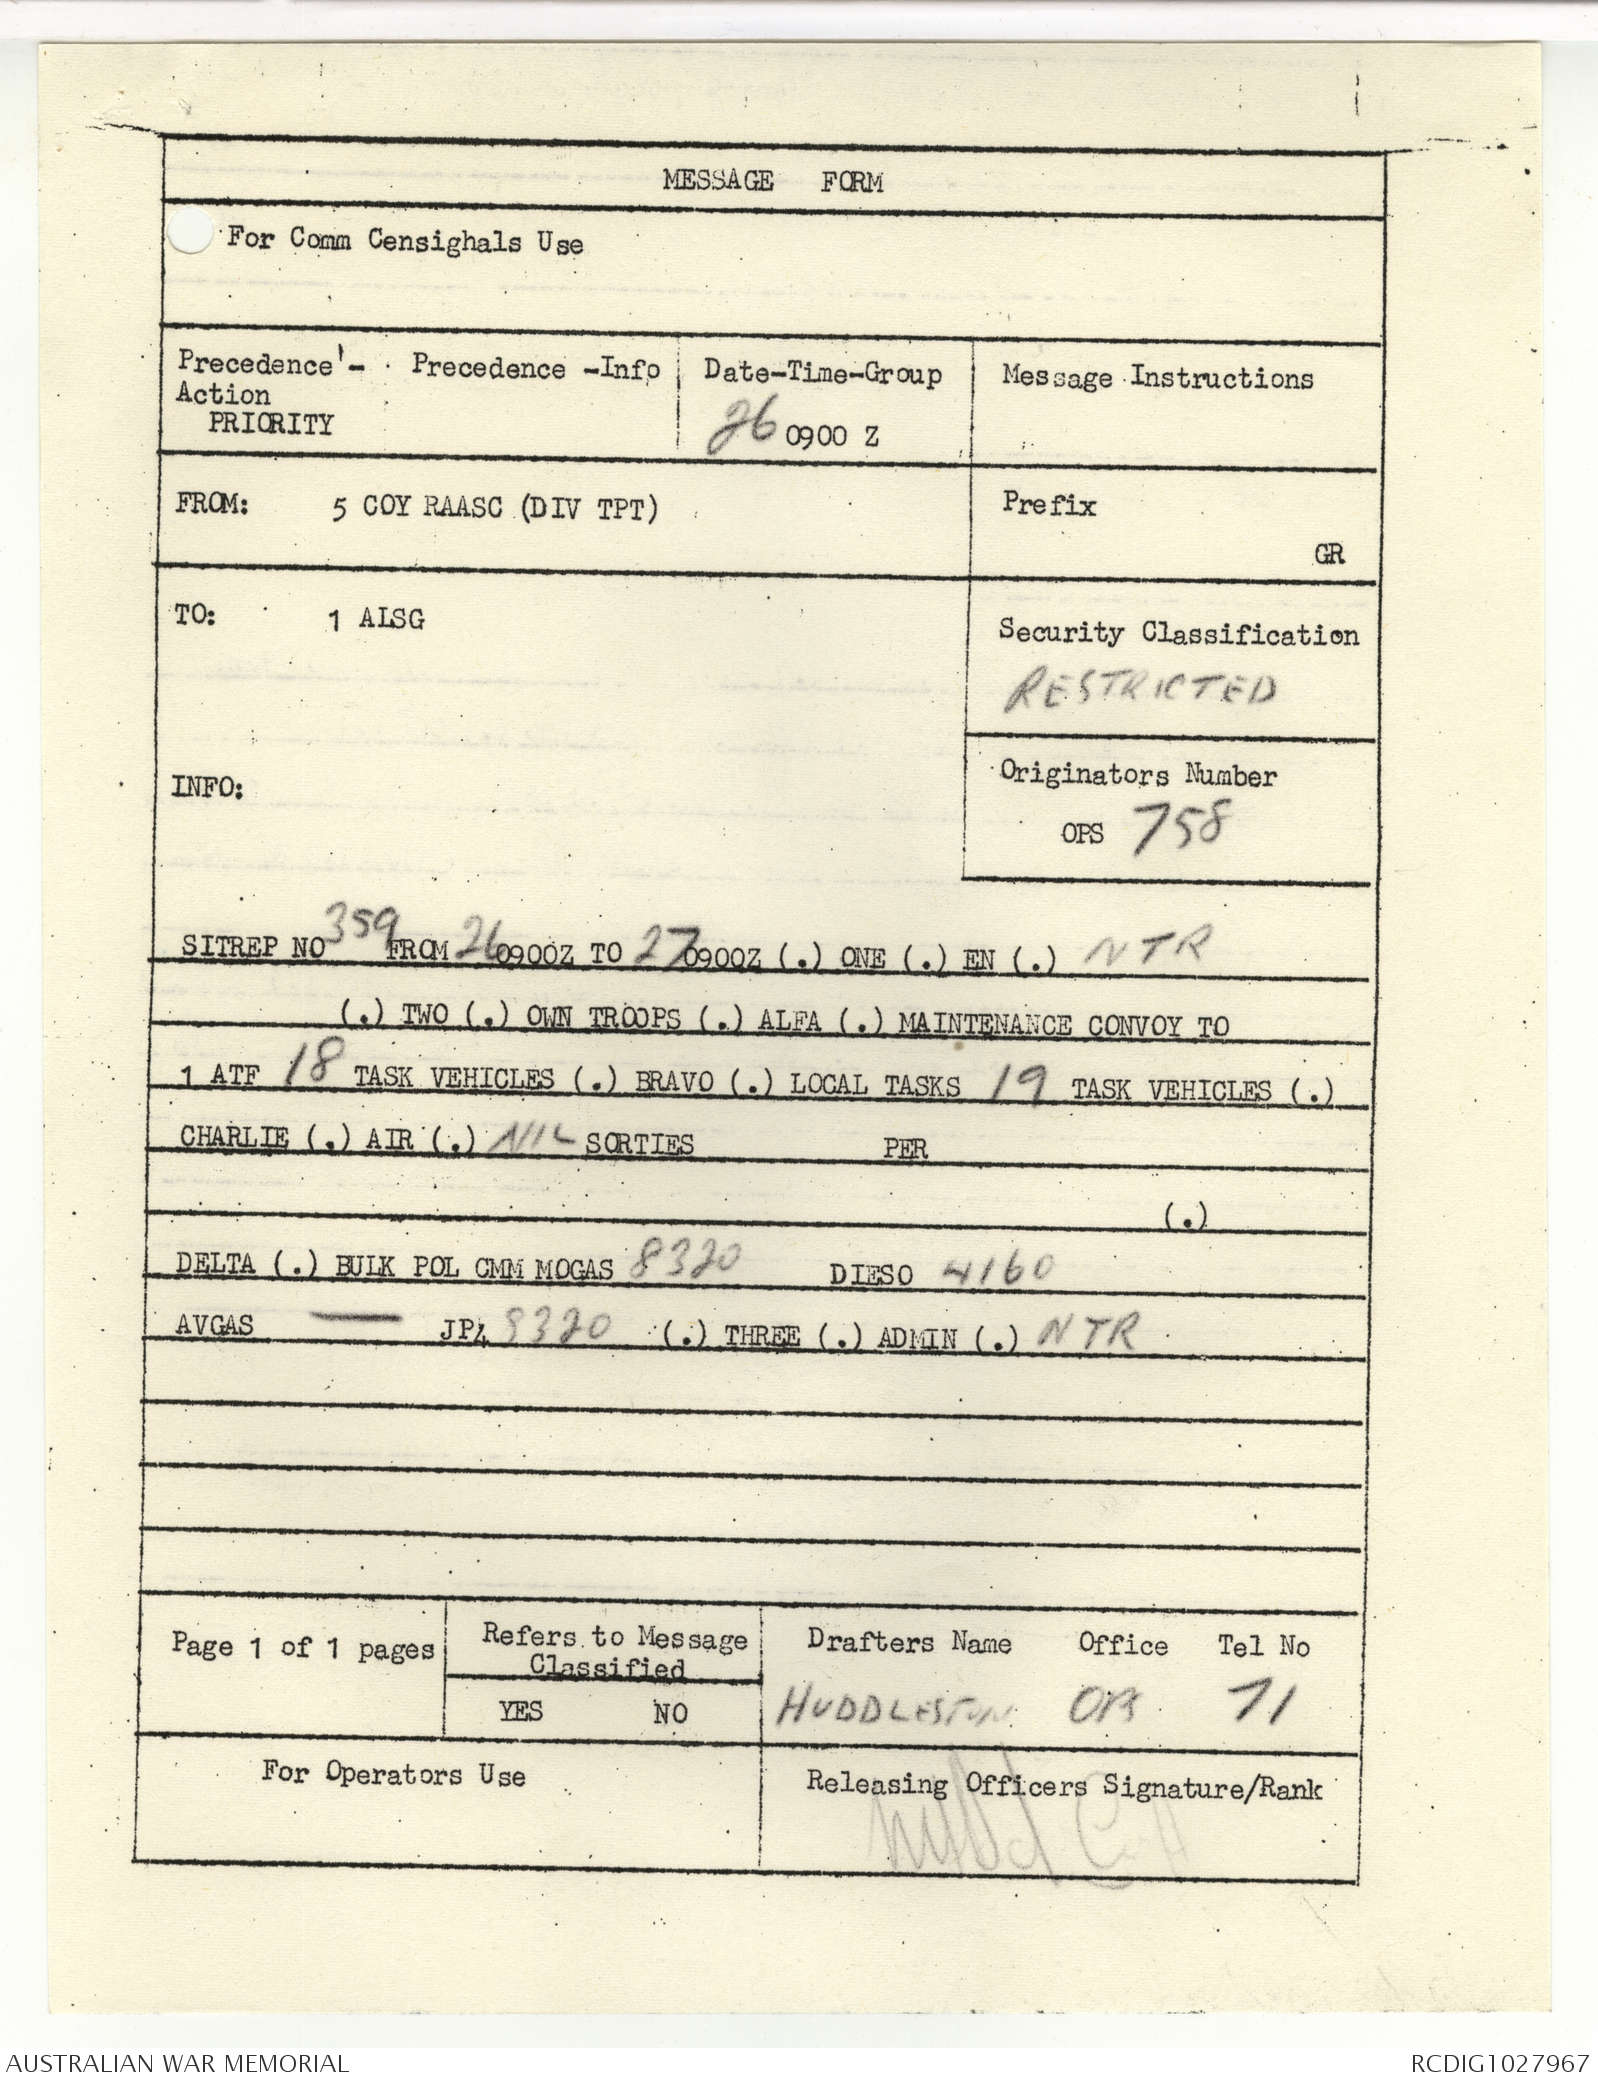 MESSAGE FORM
For Comm Censighals Use
Precedence'- Precedence -Info Date-Time-Group Message Instructions
Action
PRIORITY 26 0900 Z
FROM: 5 COY RAASC (DIV TPT) Prefix
GR
TO: 1 ALSG Security Classification
RESTRICTED
INFO: Originators Number
OPS 758
SITREP NO 359 FROM 260900Z TO 270900Z (.) ONE (.) EN (.) NTR
(.) TWO (.) OWN TROOPS (.) ALFA (.) MAINTENANCE CONVOY TO
1 ATF 18 TASK VEHICLES (.) BRAVO (.) LOCAL TASKS 19 TASK VEHICLES (.)
CHARLIE (.) AIR (.) NIL SORTIES PER
(.)
DELTA (.) BULK POL CMM MOGAS 8320 DIESO 4160
AVGAS — JP4 8320 (.) THREE (.) ADMIN (.) NTR
Page 1 of 1 pages Refers to Message Drafters Name Office Tel No
Classified
YES NO HUDDLESTON OPS 71
For Operators Use Releasing Officers Signature/Rank
AUSTRALIAN WAR MEMORIAL RCDIG1027967